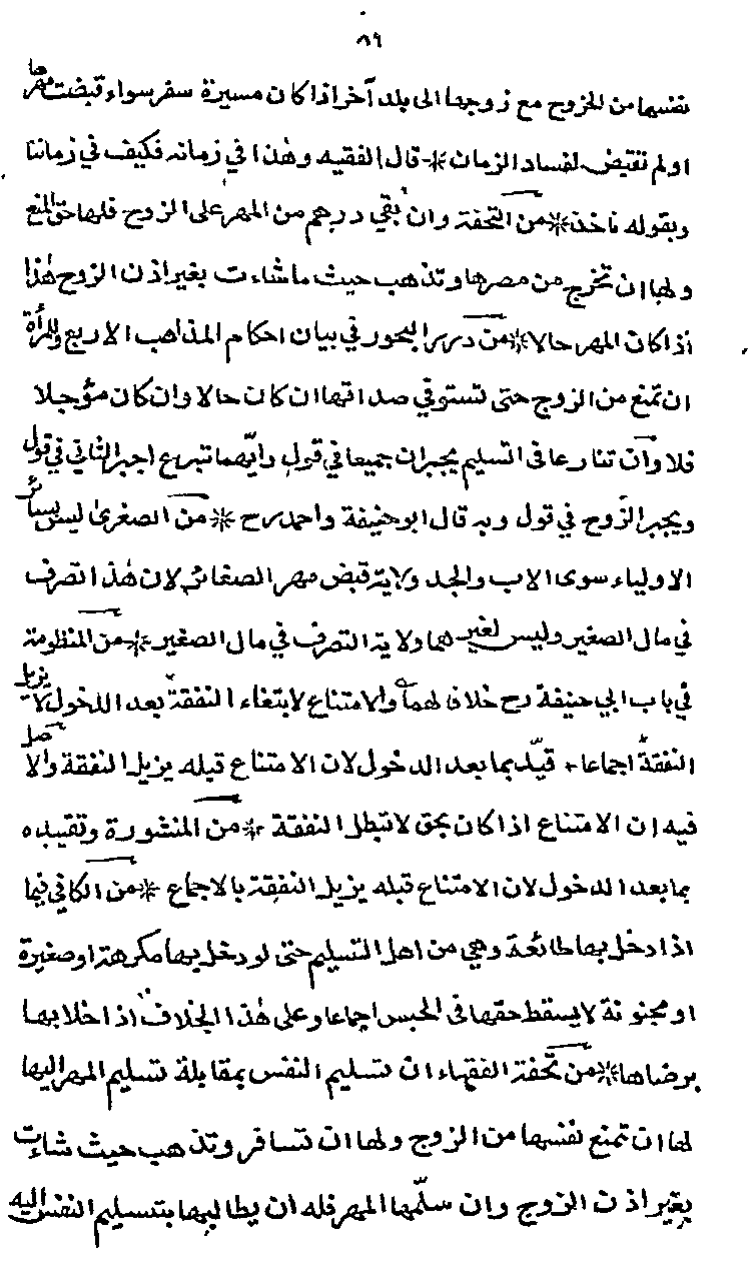 ٨٩
نفسها من الخروج مع زوجها الى بلد آخر اذا كان مسيرة سفر سواء قبضت مهرها
او لم تقبض لفساد الزمان * قال الفقيه وهذا في زمانه فكيف في زماننا
وبقوله ناخذ * من التحفة وان بقي درهم من المهر على الزوج فلها حق المنع
ولها ان تخرج من مصرها وتذهب حيث ما شاءت بغير اذن الزوج هذا
اذا كان المهر حالا * من درر البحور في بيان احكام المذاهب الاربع وللمرأة
ان تمنع من الزوج حتى تستوفي صداقها ان كان حالا وان كان مؤجلا
فلا وان تنازعا فى التسليم يجبران جميعا في قول وايّهما تبرع اجبر الثاني في قول
ويجبر الزوج في قول وبه قال ابو حنيفة واحمد رح * من الصغرىٰ ليس لسائر
الاولياء سوى الاب والجد ولاية قبض مهر الصغائر لان هذا تصرف
في مال الصغير وليس لغيرهما ولاية التصرف في مال الصغير * من المنظومة
في باب ابي حنيفة رح خلافا لهما والامتناع لابتغاء النفقة بعد الدخول لا يزيل
النفقة اجماعا + قيّد بما بعد الدخول لان الامتناع قبله يزيل النفقة والاصل
فيه ان الامتناع اذا كان بحق لا تبطل النفقة * من المنشورة وتقييده
بما بعد الدخول لان الامتناع قبله يزيل النفقة بالاجماع * من الكافي فيما
اذا دخل بها طائعة وهي من اهل التسليم حتى لو دخل بها مكرهة او صغيرة
او مجنونة لا يسقط حقها فى الحبس اجماعا وعلى هذا الخلاف اذا خلا بها
برضاها * من تحفة الفقهاء ان تسليم النفس بمقابلة تسليم المهر اليها
لها ان تمنع نفسها من الزوج ولها ان تسافر وتذهب حيث شاءت
بغير اذن الزوج وان سلّمها المهر فله ان يطالبها بتسليم النفس اليه